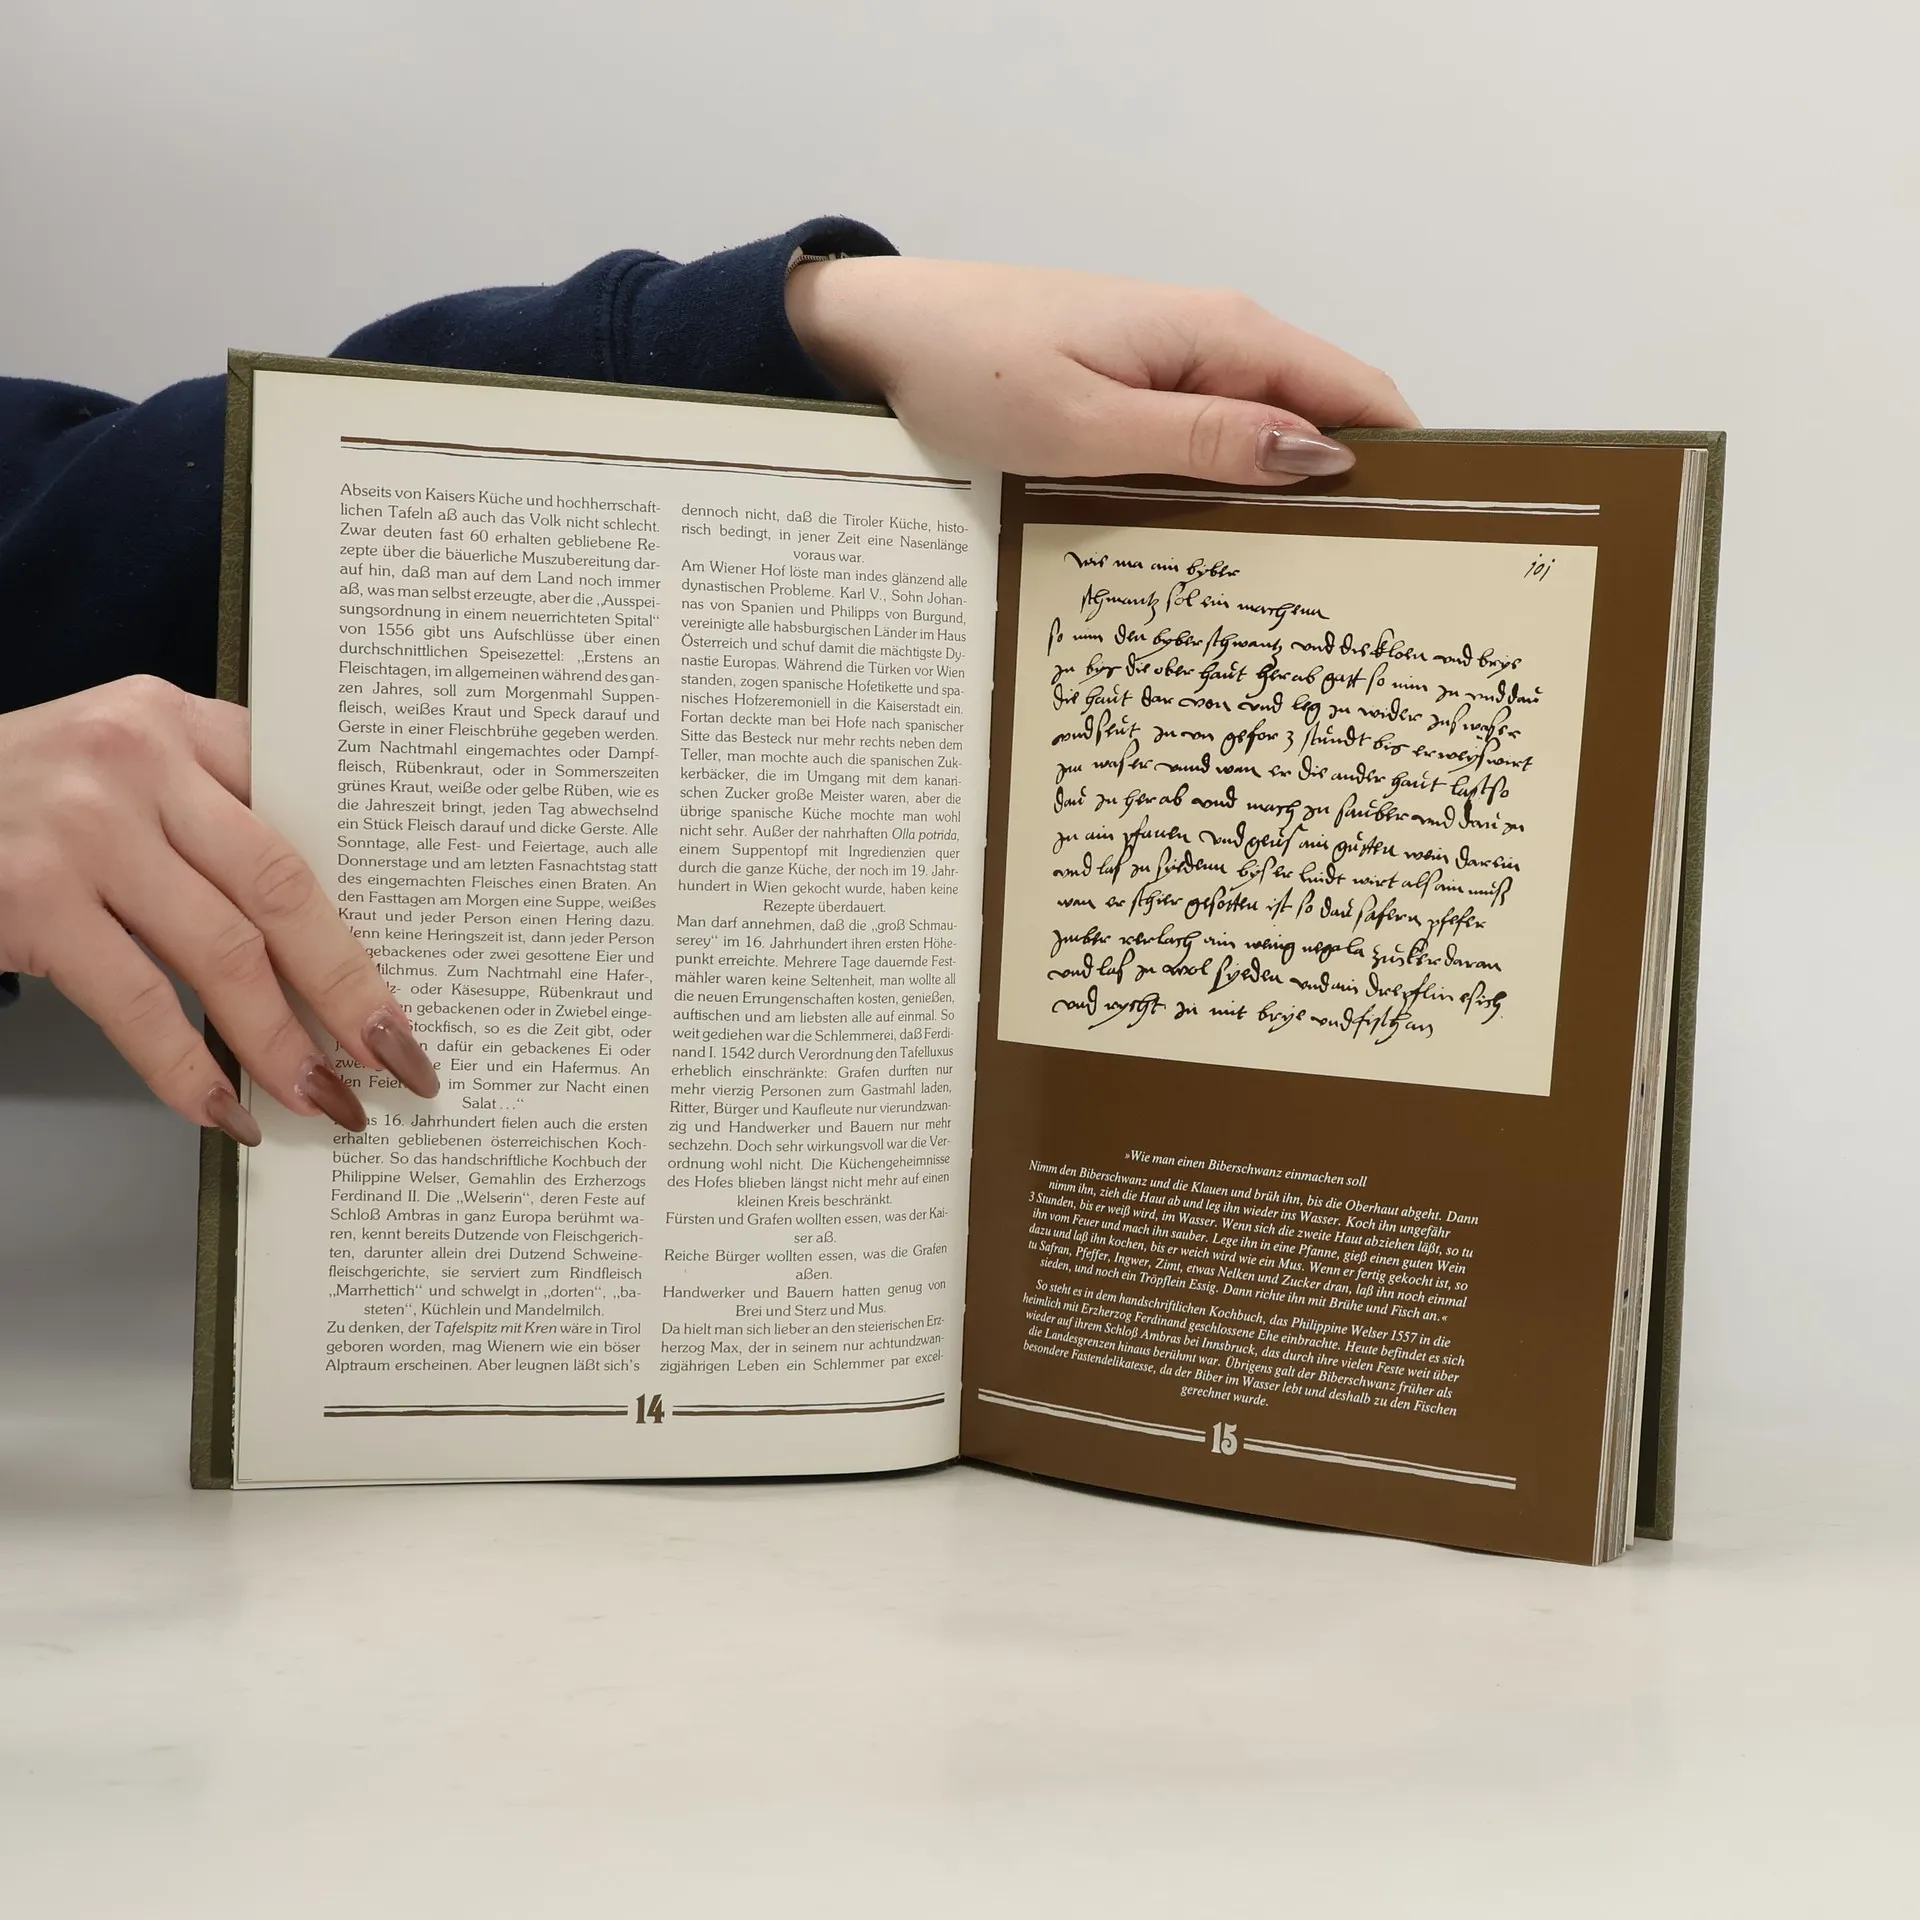 Abseits von Kaisers Küche und hochherrschaft-
lichen Tafeln aß auch das Volk nicht schlecht.
Zwar deuten fast 60 erhalten gebliebene Re-
zepte über die bäuerliche Muszubereitung dar-
auf hin, daß man auf dem Land noch immer
aß, was man selbst erzeugte, aber die „Ausspei-
sungsordnung in einem neuerrichteten Spital“
von 1556 gibt uns Aufschlüsse über einen
durchschnittlichen Speisezettel: „Erstens an
Fleischtagen, im allgemeinen während des gan-
zen Jahres, soll zum Morgenmahl Suppen-
fleisch, weißes Kraut und Speck darauf und
Gerste in einer Fleischbrühe gegeben werden.
Zum Nachtmahl eingemachtes oder Dampf-
fleisch, Rübenkraut, oder in Sommerszeiten
grünes Kraut, weiße oder gelbe Rüben, wie es
die Jahreszeit bringt, jeden Tag abwechselnd
ein Stück Fleisch darauf und dicke Gerste. Alle
Sonntage, alle Fest- und Feiertage, auch alle
Donnerstage und am letzten Fasnachtstag statt
des eingemachten Fleisches einen Braten. An
den Fasttagen am Morgen eine Suppe, weißes
Kraut und jeder Person einen Hering dazu.
keine Heringszeit ist, dann jeder Person
gebackenes oder zwei gesottene Eier und
Milchmus. Zum Nachtmahl eine Hafer-,
oder Käsesuppe, Rübenkraut und
gebackenen oder in Zwiebel einge-
Stockfisch, so es die Zeit gibt, oder
dafür ein gebackenes Ei oder
Eier und ein Hafermus. An
den im Sommer zur Nacht einen
Salat ...“
16. Jahrhundert fielen auch die ersten
erhalten gebliebenen österreichischen Koch-
bücher. So das handschriftliche Kochbuch der
Philippine Welser, Gemahlin des Erzherzogs
Ferdinand II. Die „Welserin“, deren Feste auf
Schloß Ambras in ganz Europa berühmt wa-
ren, kennt bereits Dutzende von Fleischgerich-
ten, darunter allein drei Dutzend Schweine-
fleischgerichte, sie serviert zum Rindfleisch
„Marrhettich“ und schwelgt in „dorten“, „ba-
steten“, Küchlein und Mandelmilch.
Zu denken, der Tafelspitz mit Kren wäre in Tirol
geboren worden, mag Wienern wie ein böser
Alptraum erscheinen. Aber leugnen läßt sich's
dennoch nicht, daß die Tiroler Küche, histo-
risch bedingt, in jener Zeit eine Nasenlänge
voraus war.
Am Wiener Hof löste man indes glänzend alle
dynastischen Probleme. Karl V., Sohn Johan-
nas von Spanien und Philipps von Burgund,
vereinigte alle habsburgischen Länder im Haus
Österreich und schuf damit die mächtigste Dy-
nastie Europas. Während die Türken vor Wien
standen, zogen spanische Hofetikette und spa-
nisches Hofzeremoniell in die Kaiserstadt ein.
Fortan deckte man bei Hofe nach spanischer
Sitte das Besteck nur mehr rechts neben dem
Teller, man mochte auch die spanischen Zuk-
kerbäcker, die im Umgang mit dem kanari-
schen Zucker große Meister waren, aber die
übrige spanische Küche mochte man wohl
nicht sehr. Außer der nahrhaften Olla potrida,
einem Suppentopf mit Ingredienzien quer
durch die ganze Küche, der noch im 19. Jahr-
hundert in Wien gekocht wurde, haben keine
Rezepte überdauert.
Man darf annehmen, daß die „groß Schmau-
serey“ im 16. Jahrhundert ihren ersten Höhe-
punkt erreichte. Mehrere Tage dauernde Fest-
mähler waren keine Seltenheit, man wollte all
die neuen Errungenschaften kosten, genießen,
auftischen und am liebsten alle auf einmal. So
weit gediehen war die Schlemmerei, daß Ferdi-
nand I. 1542 durch Verordnung den Tafelluxus
erheblich einschränkte: Grafen durften nur
mehr vierzig Personen zum Gastmahl laden,
Ritter, Bürger und Kaufleute nur vierundzwan-
zig und Handwerker und Bauern nur mehr
sechzehn. Doch sehr wirkungsvoll war die Ver-
ordnung wohl nicht. Die Küchengeheimnisse
des Hofes blieben längst nicht mehr auf einen
kleinen Kreis beschränkt.
Fürsten und Grafen wollten essen, was der Kai-
ser aß.
Reiche Bürger wollten essen, was die Grafen
aßen.
Handwerker und Bauern hatten genug von
Brei und Sterz und Mus.
Da hielt man sich lieber an den steierischen Erz-
herzog Max, der in seinem nur achtundzwan-
zigjährigen Leben ein Schlemmer par excel-
14
joj
wie ma ain byber
schwantz sol ein machenn
so nim den byberschwantz und die kloen und brye
jn bys die ober haut herab gatt so nim jn und dau
die haut dar von und leg jn wider jns waser
und seut jn un gefor 3 stundt bis er weys wirt
jm waser unnd wan er die ander haut last so
dau jn herab und mach jn sauber und dau jn
jn ain pfanen und geus ain gutten wein darein
und las jn syedenn bys er lindt wirt als ain mus
wan er schier gesotten ist so dau safern pfefer
jmber rerlach ain wenig negala zucker daran
und las jn wol syeden und ain drepflin esich
und rycht jn mit brye und fisch an
»Wie man einen Biberschwanz einmachen soll
Nimm den Biberschwanz und die Klauen und brüh ihn, bis die Oberhaut abgeht. Dann
nimm ihn, zieh die Haut ab und leg ihn wieder ins Wasser. Koch ihn ungefähr
3 Stunden, bis er weiß wird, im Wasser. Wenn sich die zweite Haut abziehen läßt, so tu
ihn vom Feuer und mach ihn sauber. Lege ihn in eine Pfanne, gieß einen guten Wein
dazu und laß ihn kochen, bis er weich wird wie ein Mus. Wenn er fertig gekocht ist, so
tu Safran, Pfeffer, Ingwer, Zimt, etwas Nelken und Zucker dran, laß ihn noch einmal
sieden, und noch ein Tröpflein Essig. Dann richte ihn mit Brühe und Fisch an.«
So steht es in dem handschriftlichen Kochbuch, das Philippine Welser 1557 in die
heimlich mit Erzherzog Ferdinand geschlossene Ehe einbrachte. Heute befindet es sich
wieder auf ihrem Schloß Ambras bei Innsbruck, das durch ihre vielen Feste weit über
die Landesgrenzen hinaus berühmt war. Übrigens galt der Biberschwanz früher als
besondere Fastendelikatesse, da der Biber im Wasser lebt und deshalb zu den Fischen
gerechnet wurde.
15